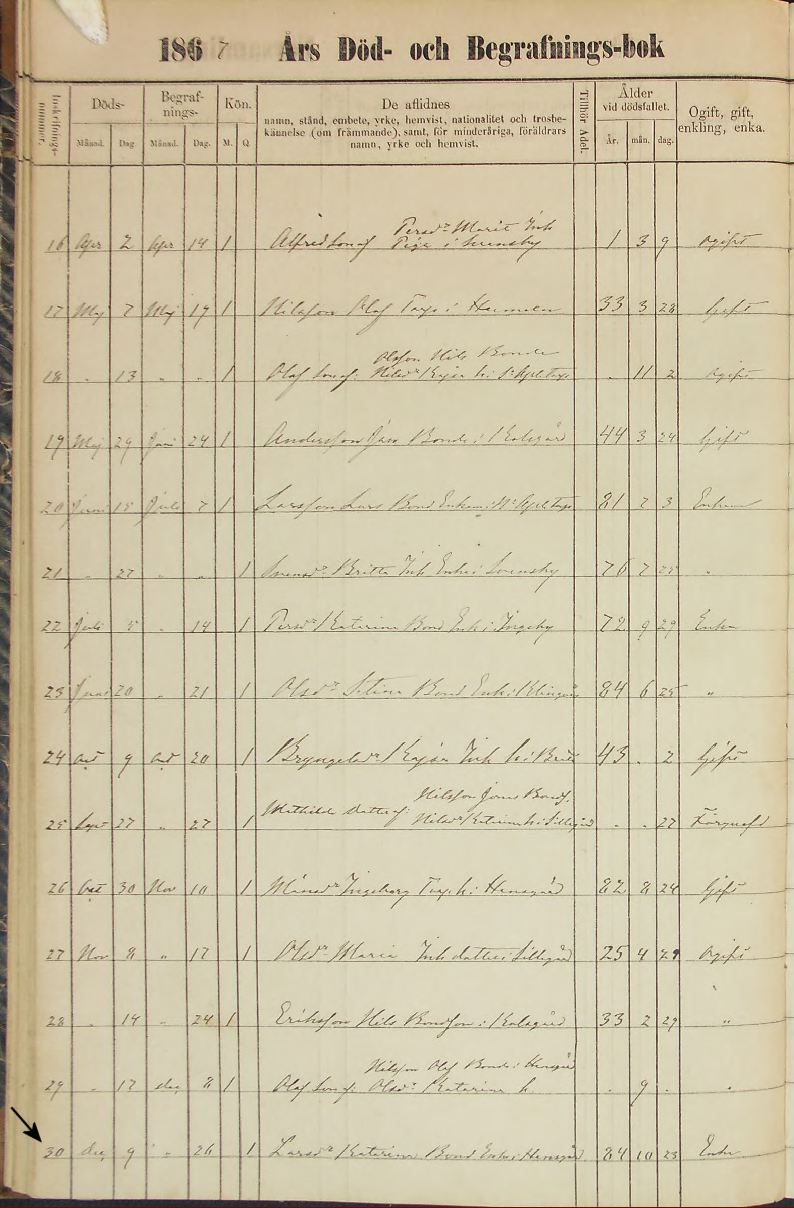 1867 Års Död- och Begrafnings-bok
Inskrifnings-nummer.
Döds-
Månad.
Dag.
Begraf-
nings-
Månad.
Dag.
Kön.
M.
Q
De aflidnes
namn, stånd, embete, yrke, hemvist, nationalitet och trosbe-
kännelse (om främmande), samt, för minderåriga, föräldrars
namn, yrke och hemvist.
Tillhör Adel.
Ålder
vid dödsfallet.
År.
mån.
dag.
Ogift, gift,
enkling, enka.
Persdr Marit Inh
16 Apr 2 Apr 14 1 Alfred son af Piga i Svensby 1 3 9 ogift
17 Maj 7 Maj 19 1 Nilsson Olof Torp i 33 3 28 Gift
Olsson Nils Bonde
18 " 13 " " 1 Olof son af Nilsdr Kajsa " 11 2 ogift
19 Maj 29 Juni 24 1 Andersson Jan Bonde i 44 3 24 Gift
20 Juni 15 Juli 7 1 Larsson Lars Bond 81 7 3
21 " 27 " " 1 Svensdr Britta Inh Enka i Svensby 76 7 25 "
22 Juli 5 " 14 1 Persdr Katarina Bond Enk i Ingeby 72 9 29 Enka
23 Juni 20 " 21 1 Olsdr Stina Bond Enk i 84 6 25 "
24 9 20 1 Bryngelsdr Kajsa Inh h i 43 . 2 Gift
Nilsson Jons Bond
25 Sept 27 " 27 1 Mathilda dotter af Nilsdr Katarina h i Sillegård . . 27
26 Oct 30 Nov 10 1 Månsdr Ingeborg Torp h i Hensgård 82 8 24 Gift
27 Nov 8 " 17 1 Olsdr Maria Inh dotter i Sillegård 25 4 29 Ogift
28 " 14 " 24 1 Eriksson Nils Bondson i 33 2 29 "
Nilsson Olof Bonde i Hensgård
29 " 17 dec 8 1 Olof son af Olsdr Katarina h. . 9 . "
30 dec 9 " 26 1 Larsdr Katarina Bond Enka i Hensgård 84 10 23 Enka